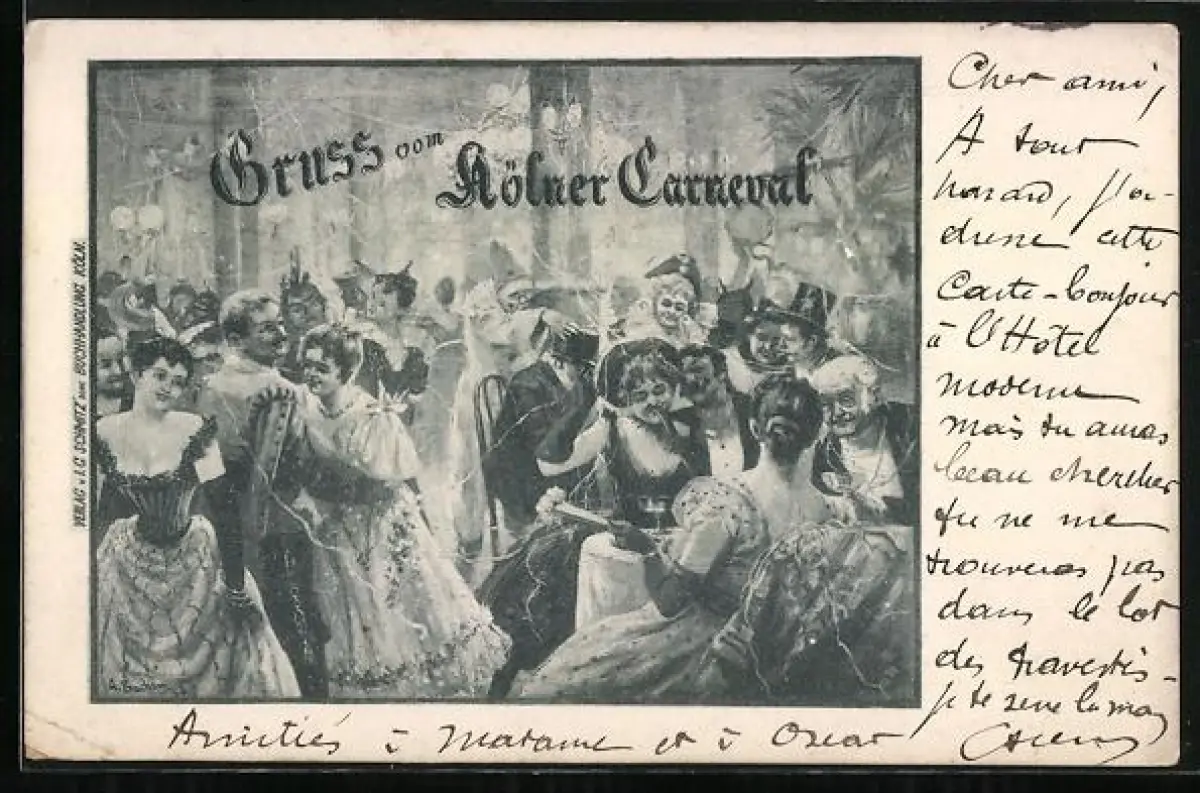 Gruss vom Kölner Carneval
VERLAG v. J. G. SCHMITZ'sche BUCHHANDLUNG KÖLN.
Cher ami,
A tout
hasard, j'a-
dresse cette
Carte-bonjour
à l'Hôtel
moderne
mais tu auras
beau chercher
tu ne me
trouveras pas
dans le lot
des travestis -
je te serre la main
Amitiés à Madame et à Oscar